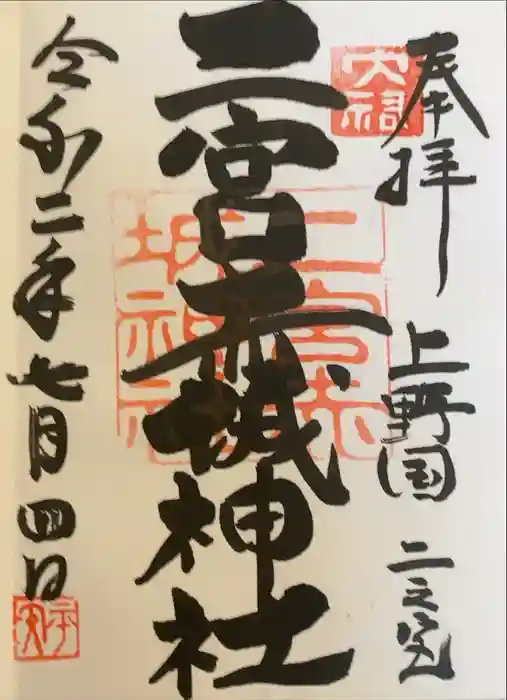 奉拝 上野国 二之宮
二宮赤城神社
令和二年七月四日
二宮赤
城神社